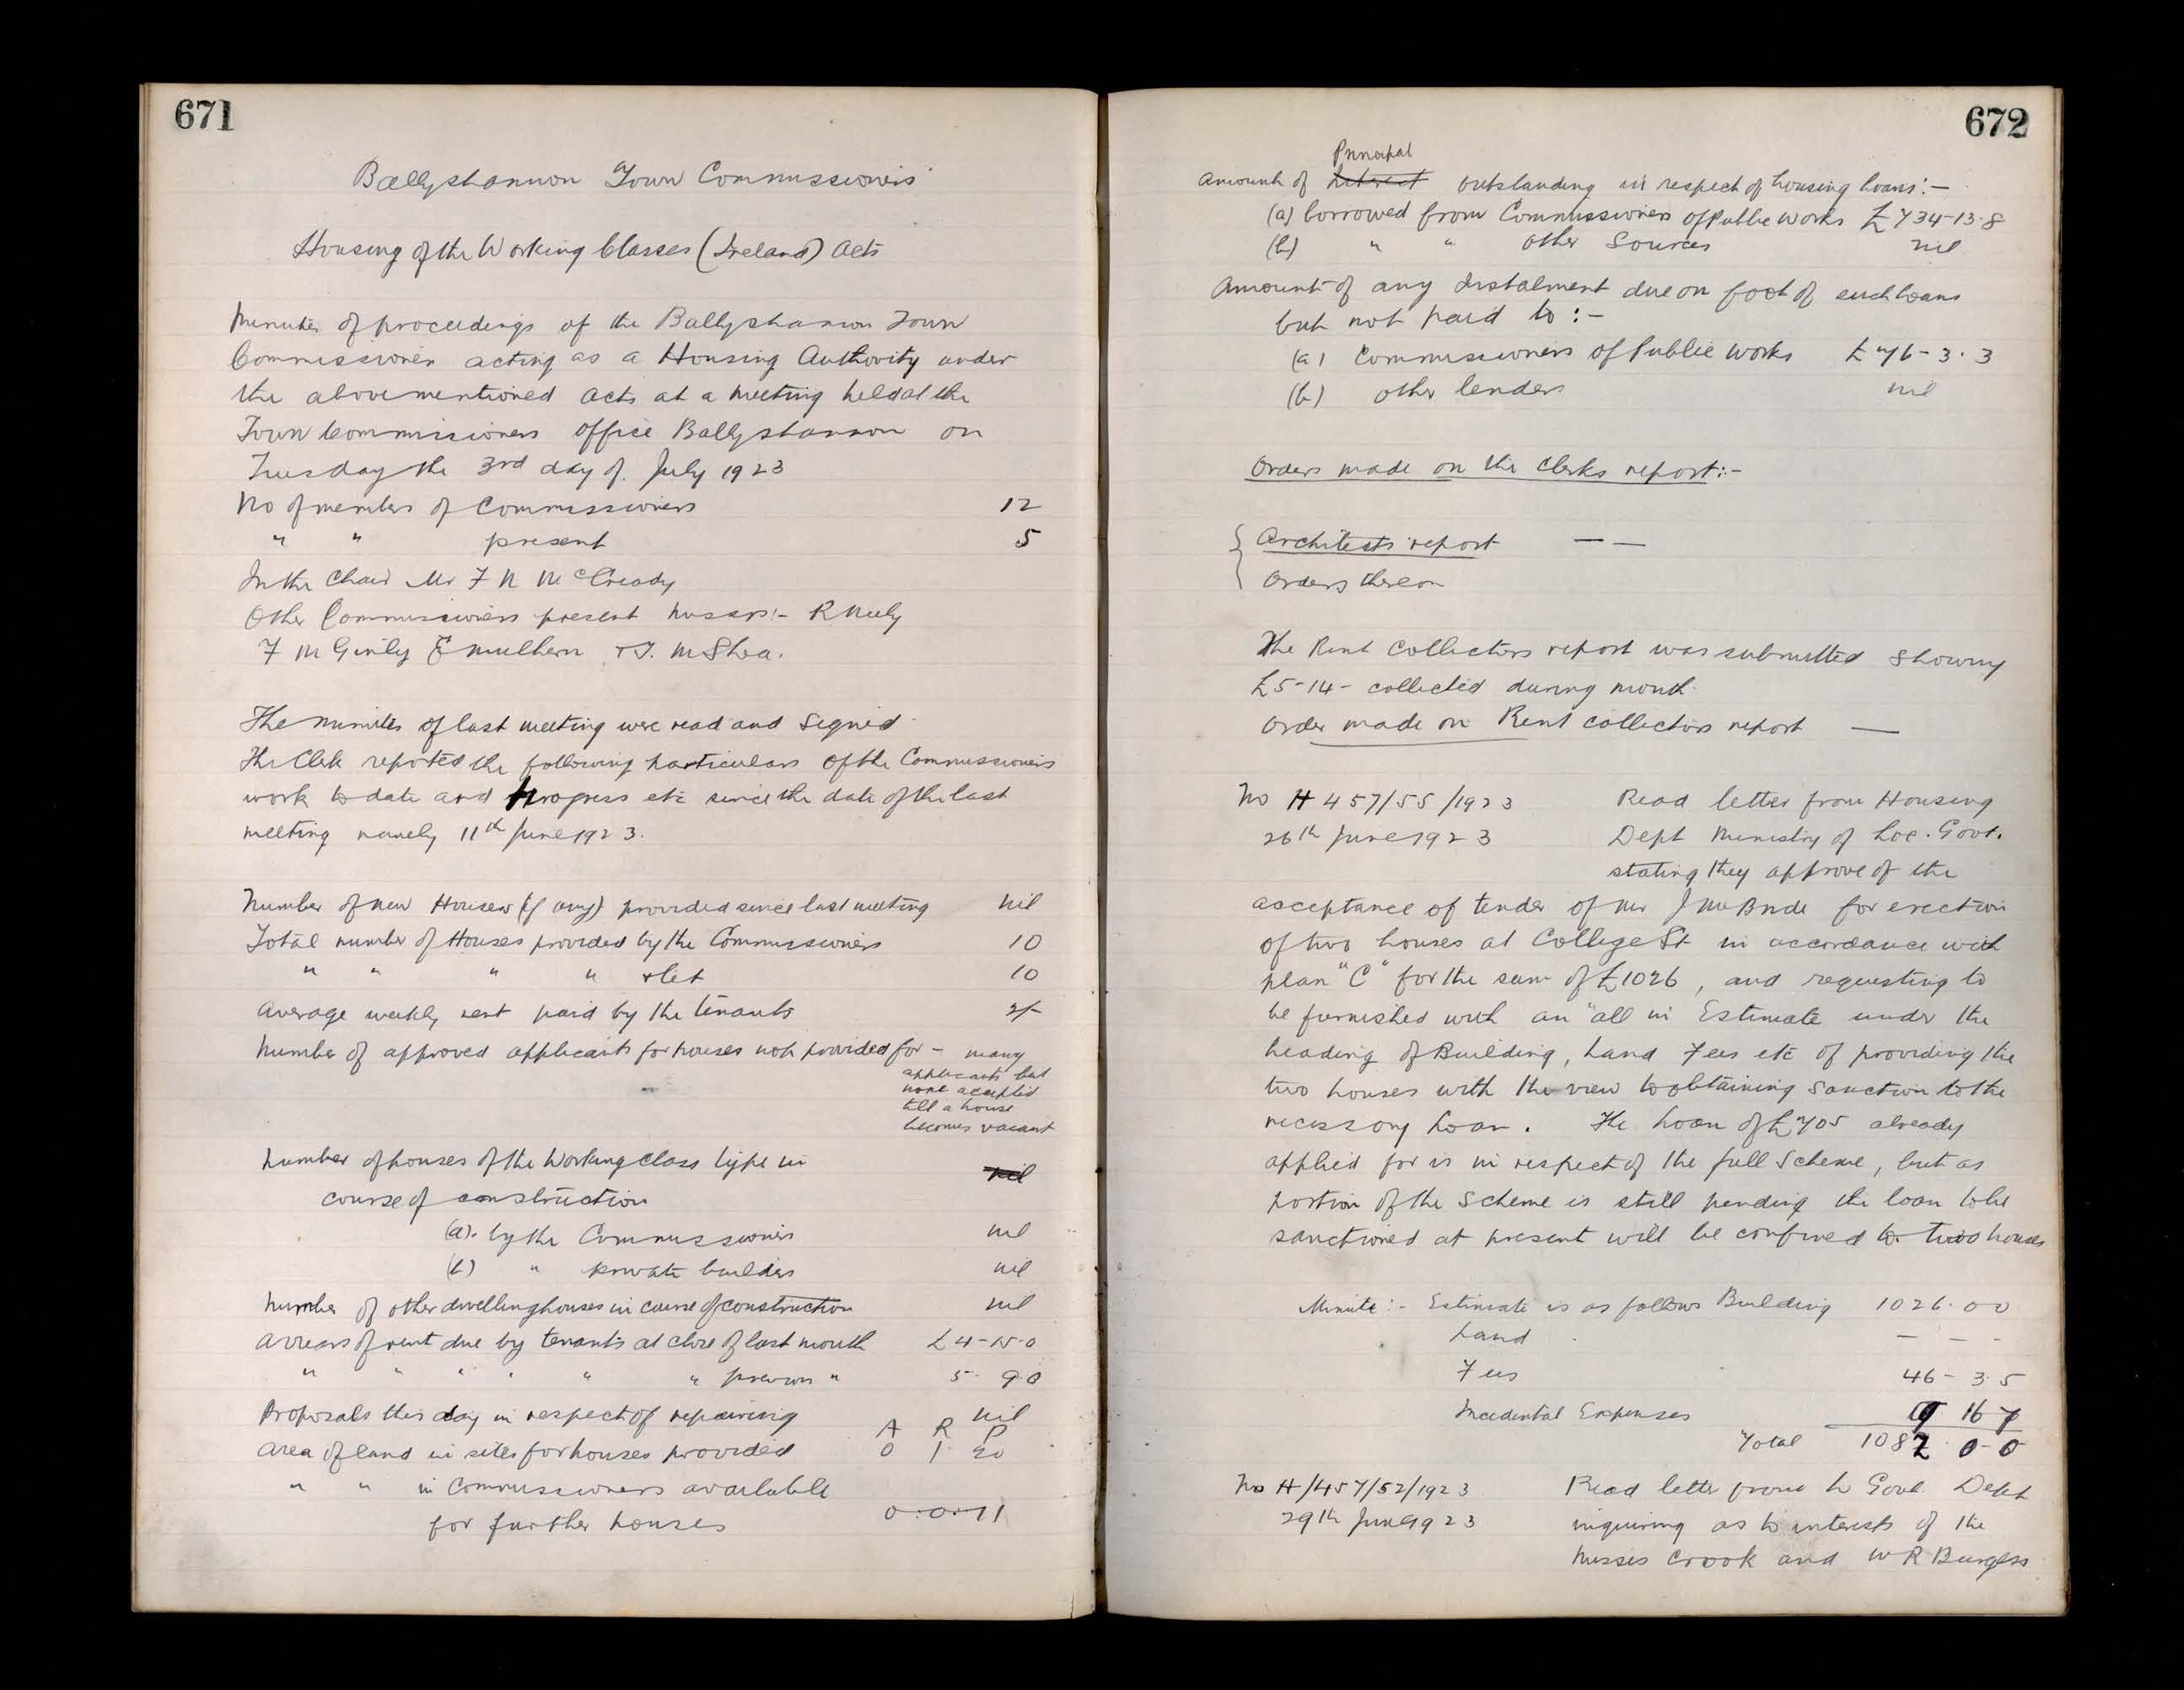 671
Ballyshannon Town Commissioners
Housing of the Working Classes (Ireland) Acts
Minutes of proceedings of the Ballyshannon Town
Commissioners acting as a Housing Authority under
the abovementioned Acts at a meeting held at the
Town Commissioners office Ballyshannon on
Tuesday the 3rd day of July 1923
No of members of Commissioners 12
" " present 5
In the Chair Mr F N McCready
Other Commissioners present Messrs:- R Neely
F McGinly E Mulhern & T. McShea.
The minutes of last meeting were read and signed
The Clerk reported the following particulars of the Commissioners
work to date and progress etc since the date of the last
meeting namely 11th June 1923.
Number of new Houses (if any) provided since last meeting nil
Total number of Houses provided by the Commissioners 10
" " " " & let 10
Average weekly rent paid by the tenants 2/-
Number of approved applicants for houses not provided for - many
applicants but
none accepted
till a house
becomes vacant
Number of houses of the Working Class type in nil
course of construction
(a). by the Commissioners nil
(b) " private builders nil
Number of other dwellinghouses in course of construction nil
Arrears of rent due by tenants at close of last month £4-15-0
" " " " " " previous " 5. 9.0
Proposals this day in respect of repairing nil
A R P
Area of land in sites for houses provided 0 1 20
" " in Commissioners available
for further houses 0.0.11
672
Principal
Amount of Interest outstanding in respect of housing loans:-
(a) borrowed from Commissioners of Public Works £734-13-8
(b) " " other Sources nil
Amount of any Instalment due on foot of such loans
but not paid to:-
(a) Commissioners of Public Works £76-3.3
(b) other lenders nil
Orders made on the Clerks report:-
Architects report — —
Orders thereon
The Rent Collectors report was submitted showing
£5-14- collected during month.
Order made on Rent collectors report —
No H 457/55/1923 Read letter from Housing
26th June 1923 Dept Ministry of Loc. Govt.
stating they approve of the
acceptance of tender of Mr J McBride for erection
of two houses at College St in accordance with
plan "C" for the sum of £1026, and requesting to
be furnished with an "all in Estimate under the
heading of Building, Land Fees etc of providing the
two houses with the view to obtaining sanction to the
necessary loan. The Loan of £705 already
applied for is in respect of the full Scheme, but as
portion of the Scheme is still pending the loan to be
sanctioned at present will be confined to two houses
Minute:- Estimate is as follows Building 1026.00
Land — — -
Fees 46-3.5
Incidental Expenses 9 16 7
Total 1082 0-0
No H/457/52/1923 Read letter from L Govt. Dept
29th June 1923 inquiring as to interests of the
Misses Crook and W R Burgess